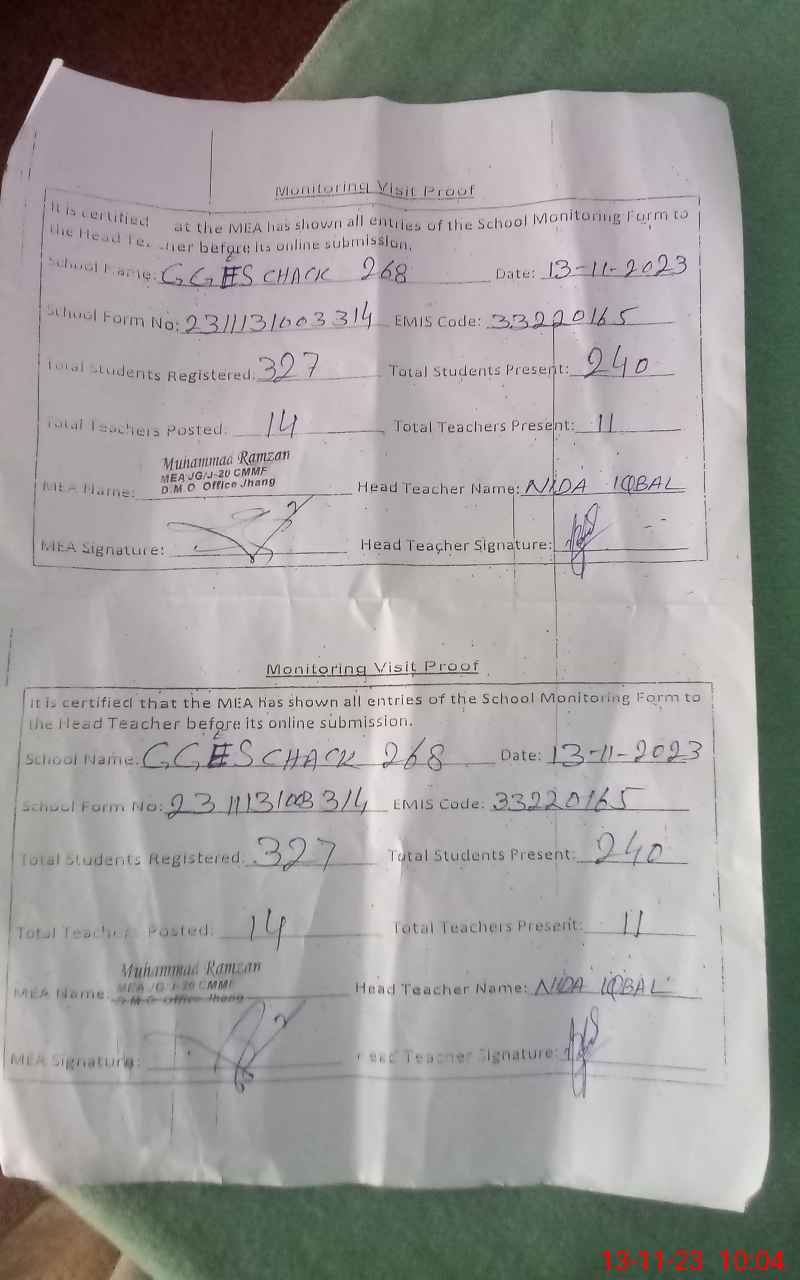 Monitoring Visit Proof
It is certified at the MEA has shown all entries of the School Monitoring Form to
the Head Te cher before its online submission.
School Name: GGES CHACK 268 Date: 13-11-2023
School Form No: 2311131003314 EMIS Code: 33220165
Total Students Registered: 327 Total Students Present: 240
Total Teachers Posted: 14 Total Teachers Present: 11
Muhammad Ramzan
MEA JG/J-20 CMMF
MEA Name: D.M.O Office Jhang Head Teacher Name: NIDA IQBAL
MEA Signature: Head Teacher Signature:
Monitoring Visit Proof
It is certified that the MEA has shown all entries of the School Monitoring Form to
the Head Teacher before its online submission.
School Name: GGES CHACK 268 Date: 13-11-2023
School Form No: 2311131003314 EMIS Code: 33220165
Total Students Registered: 327 Total Students Present: 240
Total Teachers Posted: 14 Total Teachers Present: 11
Muhammad Ramzan
MEA JG J-20 CMMF
MEA Name: D.M.O Office Jhang Head Teacher Name: NIDA IQBAL
MEA Signature: Head Teacher Signature:
13-11-23 10:04